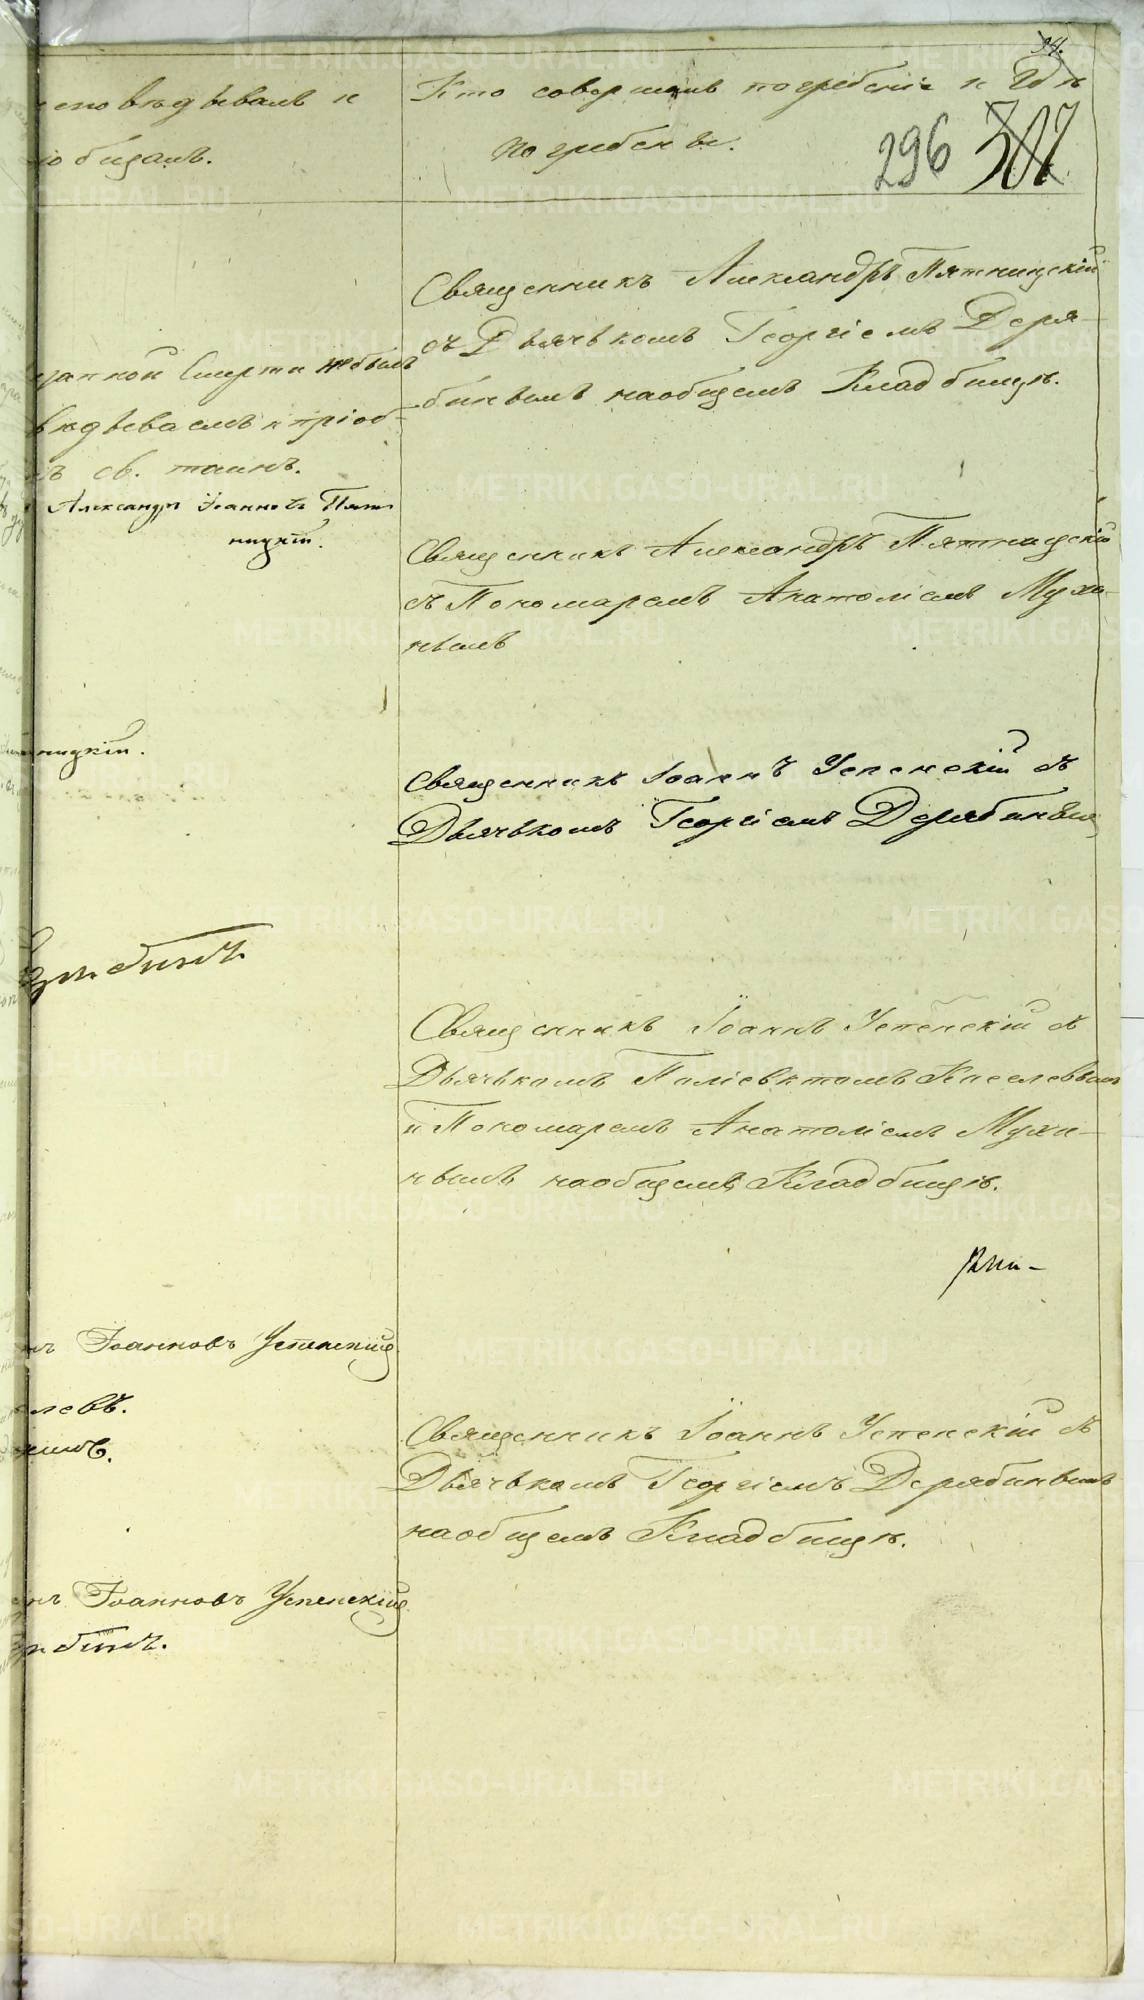 34.
исповѣдывалъ и
Кто совершалъ погребенiе и гдѣ
пріобщалъ.
погребены.
296 307
Священникъ Александръ Пятницкій
съ Дьячькомъ Георгіемъ Деря-
бинымъ на общемъ Кладбищѣ.
запной смерти не былъ
вѣдываемъ и пріоб-
св. таинъ.
Александръ Іоанновъ Пят-
ницкій.
Священникъ Александръ Пятницкій
съ Пономаремъ Анатоліемъ Мухи-
нымъ
ницкій.
Священникъ Іоаннъ Успенскій съ
Дьячькомъ Георгіемъ Дерябинымъ
Священникъ Іоаннъ Успенскій съ
Дьячькомъ Поліевктомъ Киселевымъ
и Пономаремъ Анатоліемъ Мухи-
нымъ на общемъ Кладбищѣ.
нъ Іоанновъ Успенскій
левъ.
Священникъ Іоаннъ Успенскій съ
Дьячькомъ Георгіемъ Дерябинымъ
на общемъ Кладбищѣ.
нъ Іоанновъ Успенскій
METRIKI.GASO-URAL.RU